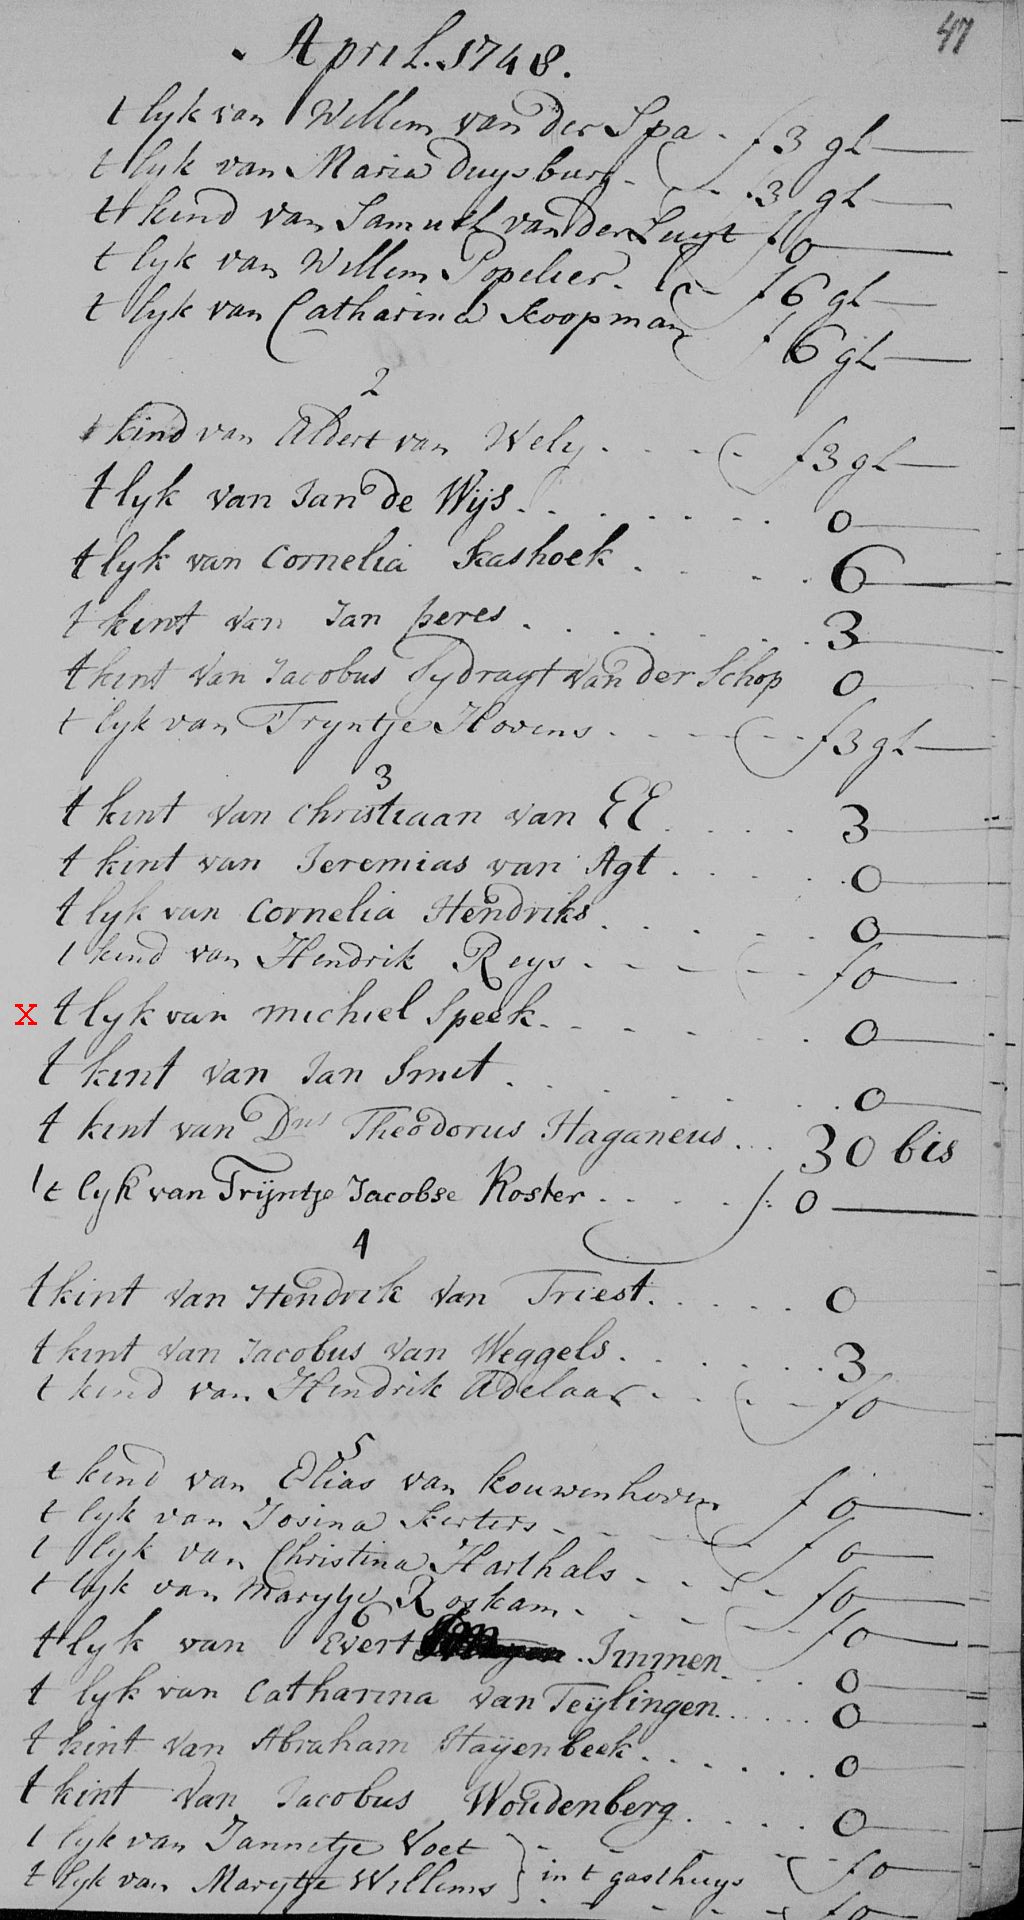 47
April. 1748.
t lyk van Willem van der Spa . f 3 gl
t lyk van Maria Duysburg - - . 3 gl
t kind van Samuel van der Luyt f 0
t lyk van Willem Popelier. - f 6 gl
t lyk van Catharina Koopman f 6 gl
2
t kind van Albert van Wely . . . . f 3 gl
t lyk van Jan de Wijs . . . . . . . 0
t lyk van Cornelia Kashoek . . . . . 6
t kint van Jan peres . . . . . . . 3
t kint van Jacobus Sydragt van der Schop 0
t lyk van Tryntje Hovens . - - - - f 3 gl
3
t kint van Christiaan van EE . . . . . 3
t kint van Jeremias van Agt . . . . . 0
t lyk van Cornelia Hendriks . . . . . 0
t kind van Hendrik Reys . - - - - f 0
x t lyk van michiel Speek . . . . . 0
t kint van Jan Smit . . . . . . 0
t kint van Dns Theodorus Haganeus . . . 30 bis
't lyk van Trijntje Jacobse Koster . . . . f: 0
4
t kint van Hendrik van Triest . . . . . 0
t kint van Jacobus van Weggels . . . . . . 3
t kind van Hendrik Adelaar - . . - - f 0
5
t kind van Elias van Kouwenhoven f 0
t lyk van Josina Kerters - - - f 0
t lyk van Christina Harthals - - - - f 0
t lyk van Marytje Roskam - - - - f 0
t lyk van Evert Immen . . . . 0
t lyk van Catharina van Teylingen . . . . . 0
t kint van Abraham Hayenbeek . . . . . . 0
t kint van Jacobus Woudenberg . . . . . 0
t lyk van Jannetje Voet - - - - f 0
t lyk van Marytje Willems } in t gasthuys f 0